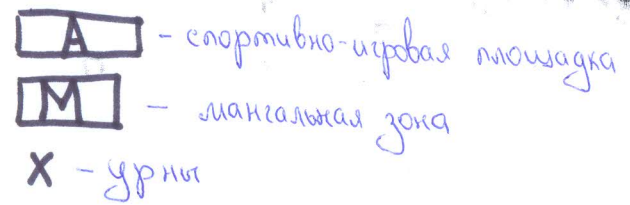 А - спортивно-игровая площадка
М - мангальная зона
X - урны